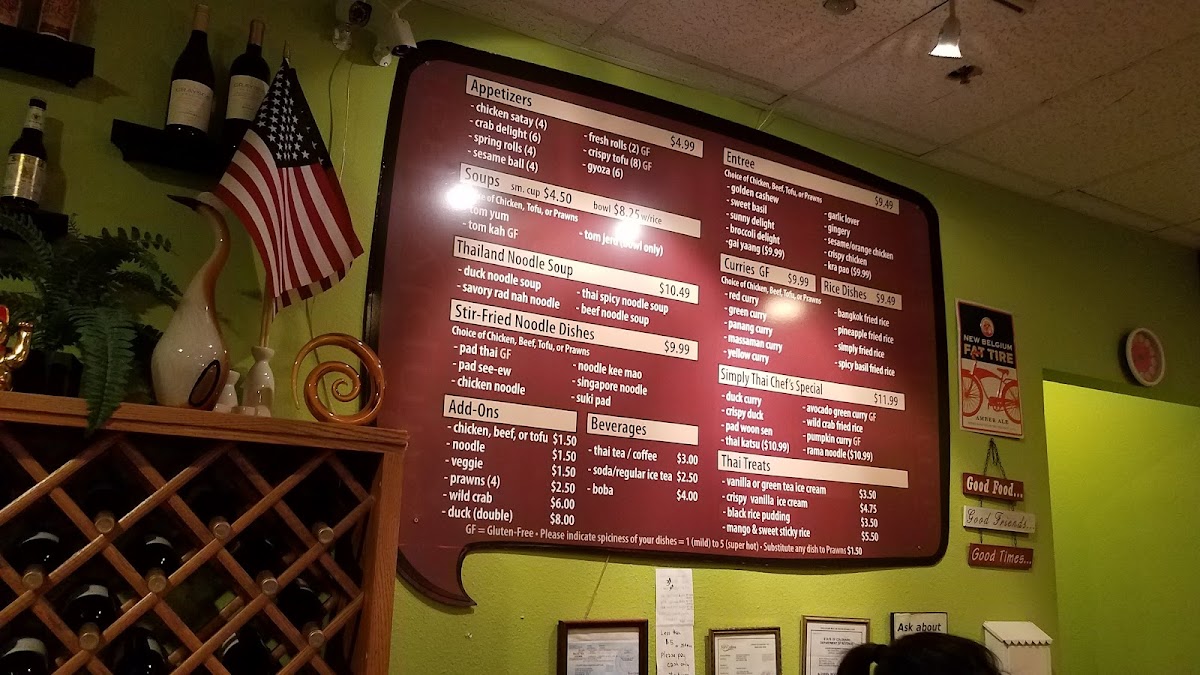 Appetizers $4.99
- chicken satay (4)
- crab delight (6)
- spring rolls (4)
- sesame ball (4)
- fresh rolls (2) GF
- crispy tofu (8) GF
- gyoza (6)
Soups sm. cup $4.50 bowl $8.25 w/rice
of Chicken, Beef, Tofu, or Prawns
- tom yum
- tom kah GF
- tom jerd (bowl only)
Thailand Noodle Soup $10.49
- duck noodle soup
- savory rad nah noodle
- thai spicy noodle soup
- beef noodle soup
Stir-Fried Noodle Dishes $9.99
Choice of Chicken, Beef, Tofu, or Prawns
- pad thai GF
- pad see-ew
- chicken noodle
- noodle kee mao
- singapore noodle
- suki pad
Add-Ons
- chicken, beef, or tofu $1.50
- noodle $1.50
- veggie $1.50
- prawns (4) $2.50
- wild crab $6.00
- duck (double) $8.00
Beverages
- thai tea / coffee $3.00
- soda/regular ice tea $2.50
- boba $4.00
Entree $9.49
Choice of Chicken, Beef, Tofu, or Prawns
- golden cashew
- sweet basil
- sunny delight
- broccoli delight
-gai yaang ($9.99)
- garlic lover
- gingery
- sesame/orange chicken
- crispy chicken
- kra pao ($9.99)
Curries GF $9.99
Choice of Chicken, Beef, Tofu, or Prawns
- red curry
- green curry
- panang curry
- massaman curry
- yellow curry
Rice Dishes $9.49
- bangkok fried rice
- pineapple fried rice
- simply fried rice
- spicy basil fried rice
Simply Thai Chef's Special $11.99
- duck curry
- crispy duck
- pad woon sen
- thai katsu ($10.99)
- avocado green curry GF
- wild crab fried rice
- pumpkin curry GF
- rama noodle ($10.99)
Thai Treats
- vanilla or green tea ice cream $3.50
- crispy vanilla ice cream $4.75
- black rice pudding $3.50
- mango & sweet sticky rice $5.50
GF = Gluten-Free • Please indicate spiciness of your dishes = 1 (mild) to 5 (super hot) • Substitute any dish to Prawns $1.50
NEW BELGIUM
FAT TIRE
AMBER ALE
Good Food...
Good Friends...
Good Times...
Ask about